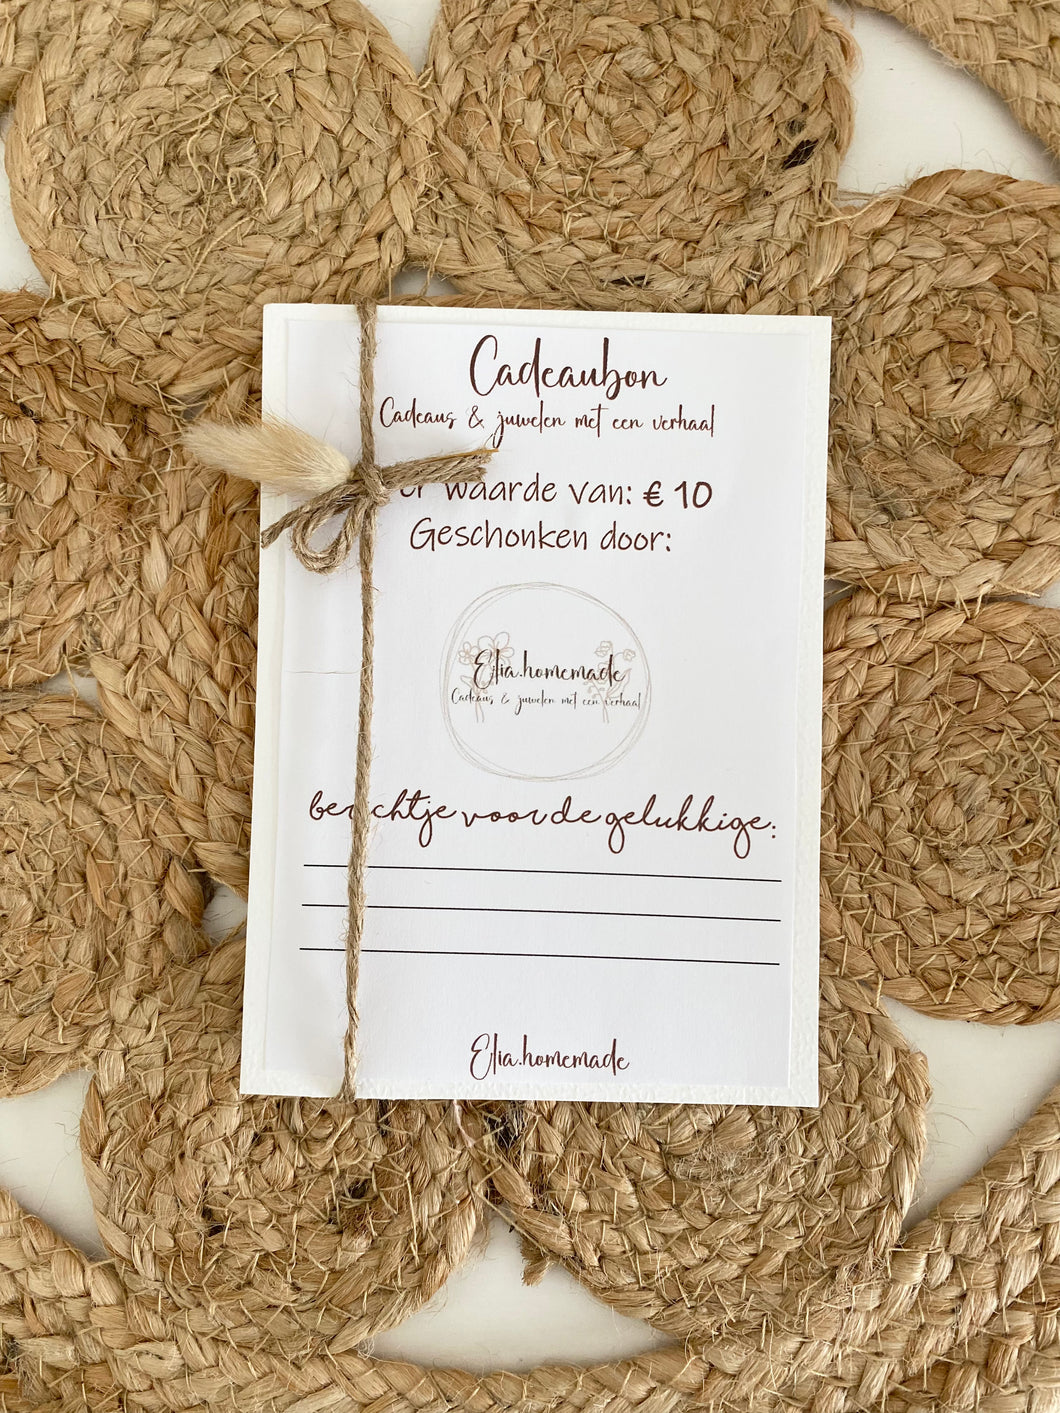 Cadeaubon
Cadeaus & juwelen met een verhaal
er waarde van: € 10
Geschonken door:
Elia.homemade
Cadeaus & juwelen met een verhaal
berichtje voor de gelukkige:
Elia.homemade